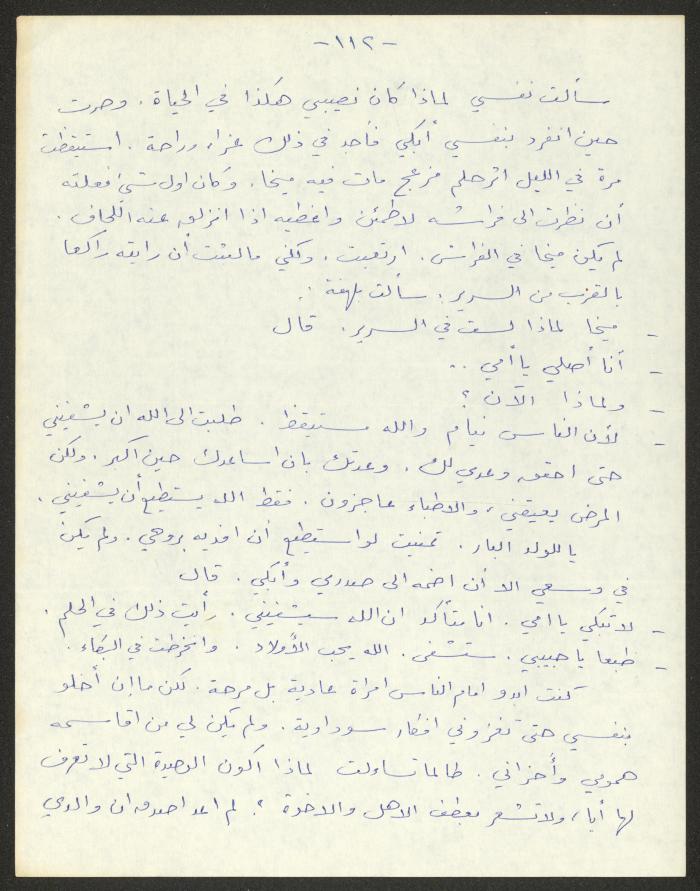 -١١٢-
سألت نفسي لماذا كان نصيبي هكذا في الحياة. وصرت
حين انفرد بنفسي أبكي فأجد في ذلك عزاء وراحة. استيقظت
مرة في الليل اثر حلم مزعج مات فيه ميخا. وكان اول شيء فعلته
أن نظرت الى فراشه لاطمئن واغطيه اذا انزلق عنه اللحاف.
لم يكن ميخا في الفراش. ارتعبت. ولكني مالبثت أن رايته راكعا
بالقرب من السرير. سألت بلهفة:
- ميخا لماذا لست في السرير. قال
- أنا أصلي يا أمي ..
- ولماذا الآن؟
- لأن الناس نيام والله مستيقظ. طلبت الى الله ان يشفيني
حتى احقق وعدي لك. وعدتك بان اساعدك حين اكبر. ولكن
المرض يعيقني، والاطباء عاجزون. فقط الله يستطيع أن يشفيني.
يا للولد البار. تمنيت لو استطيع أن افديه بروحي. ولم يكن
في وسعي الا أن اضمه الى صدري وأبكي. قال
- لا تبكي يا امي. انا متأكد ان الله سيشفيني. رأيت ذلك في الحلم.
- طبعا يا حبيبي. ستشفى. الله يحب الأولاد. وانخرطت في البكاء.
كنت ابدو امام الناس امرأة عادية بل مرحة. لكن ما إن أخلو
بنفسي حتى تغزوني افكار سوداوية. ولم يكن لي من اقاسمه
همومي وأحزاني. طالما تساءلت لماذا اكون الوحيدة التي لا تعرف
لها أبا، ولا تشعر بعطف الاهل والاخوة؟. لم اعد اصدق ان والدي